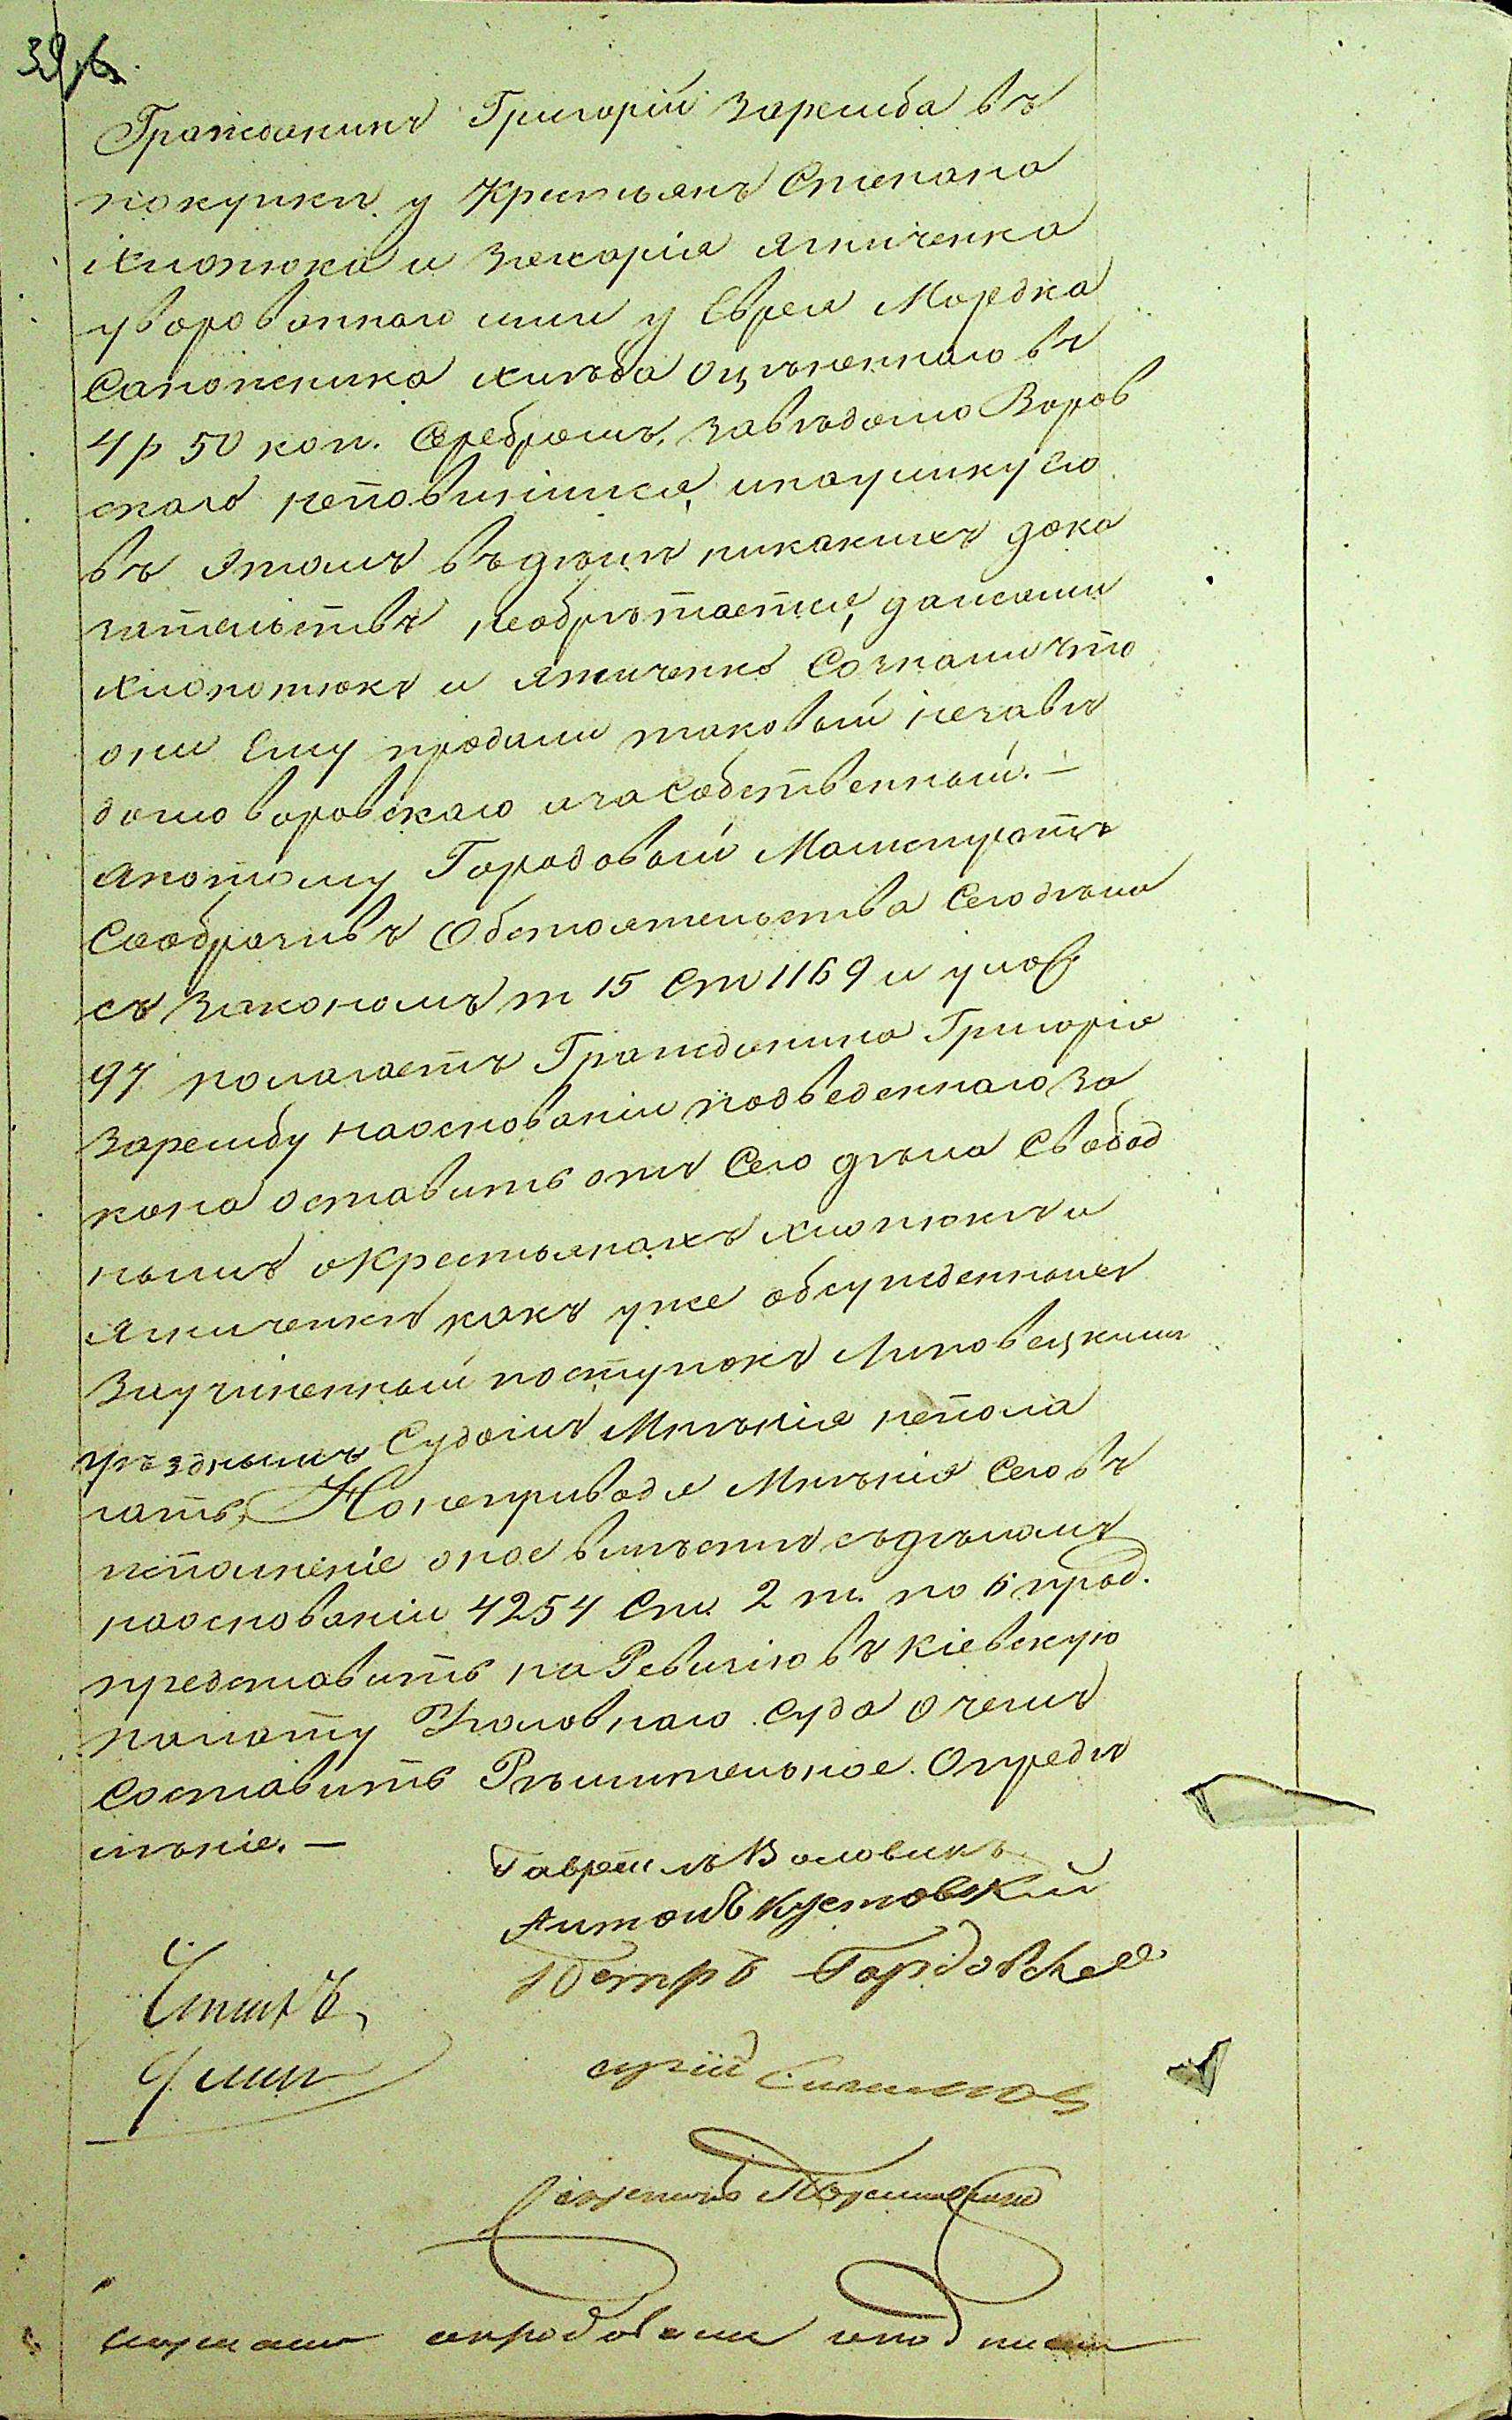 Гражданинъ Григорій Заремба въ
покупки у Крестьянъ Степана
Хлопюка и Захарія Ягниченка
уворованнаго ими у Еврея Мордка
Сапожника хлѣба оцѣненнаго въ
4 р 50 коп. Серебромъ, завѣдомо Воров
скаго неповинился, инаулику его
въ этомъ въдѣлѣ никакихъ дока
зательствъ необрѣтается, дажеми
Хлопотюкъ и Ягниченко Сознали что
они Ему продали таковый незавѣ
домо воровскаго аза Собственный. —
Апотому Городовый Магистратъ
Сообразивъ Обстоятельства Сего дѣла
съ Закономъ т 15 Ст 1169 и улож
97 полагаетъ Гражданина Григорія
Зарембу наоснованіи подведеннаго За
кона оставить отъ Сего дѣла Свобод
нымъ окрестьянахъ Хлопюкѣ и
Ягниченкѣ какъ уже обсужденныхъ
Заучиненный поступокъ Липовецкимъ
уѣзднымъ Судомъ Мнѣнія непола
гать, Но неприводя Мнѣнія Сего въ
исполненіе оное вмѣстѣ съдѣломъ
наоснованіи 4254 Ст. 2 т. по 6 прод.
представить на Ревизію въ Кіевскую
палату Уголовнаго Суда О чемъ
Составить Рѣшительное Опредѣ
лѣніе. —
Гавріилъ Воловикъ
Антонъ Кустовскій
Петръ Гордовскій